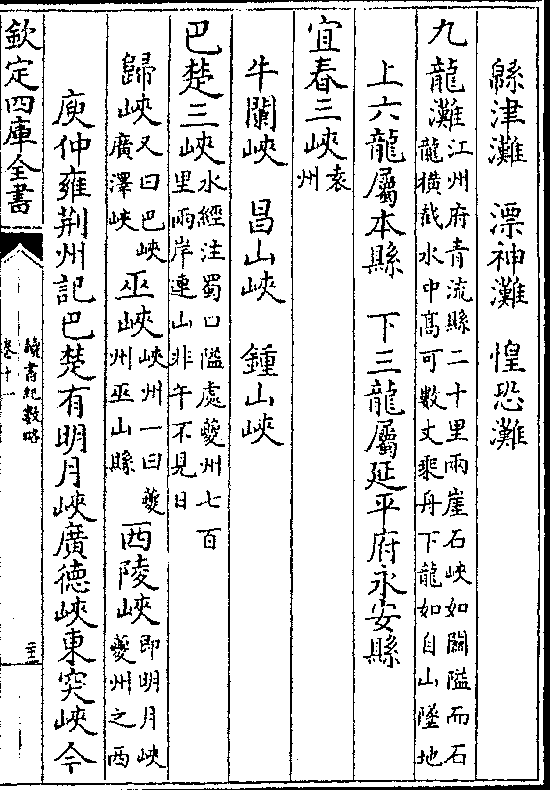 緜津灘　漂神灘　惶恐灘
九龍灘江州府青流縣二十里兩崖石峽如闗隘而石
龍橫截水中髙可數丈乗舟下龍如自山墜地
上六龍屬本縣　下三龍屬延平府永安縣
宜春三峽袁
州
牛闌峽　昌山峽　鍾山峽
巴楚三峽水經注蜀口隘處夔州七百
里兩岸連山非午不見日
歸峽又曰巴峽
廣澤峽
巫峽峽州一曰夔
州巫山縣
西陵峽即明月峽
夔州之西
庾仲雍荆州記巴楚有明月峽廣德峽東突峽今
欽定四庫全書
讀書紀數略
卷十一